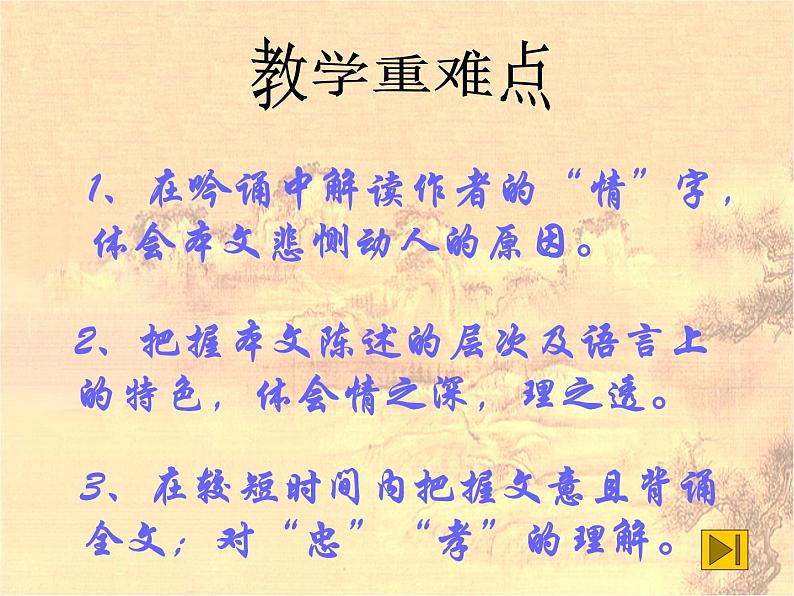 教学重难点
1、在吟诵中解读作者的“情”字，
体会本文悲恻动人的原因。
2、把握本文陈述的层次及语言上
的特色，体会情之深，理之透。
3、在较短时间内把握文意且背诵
全文；对“忠”“孝”的理解。